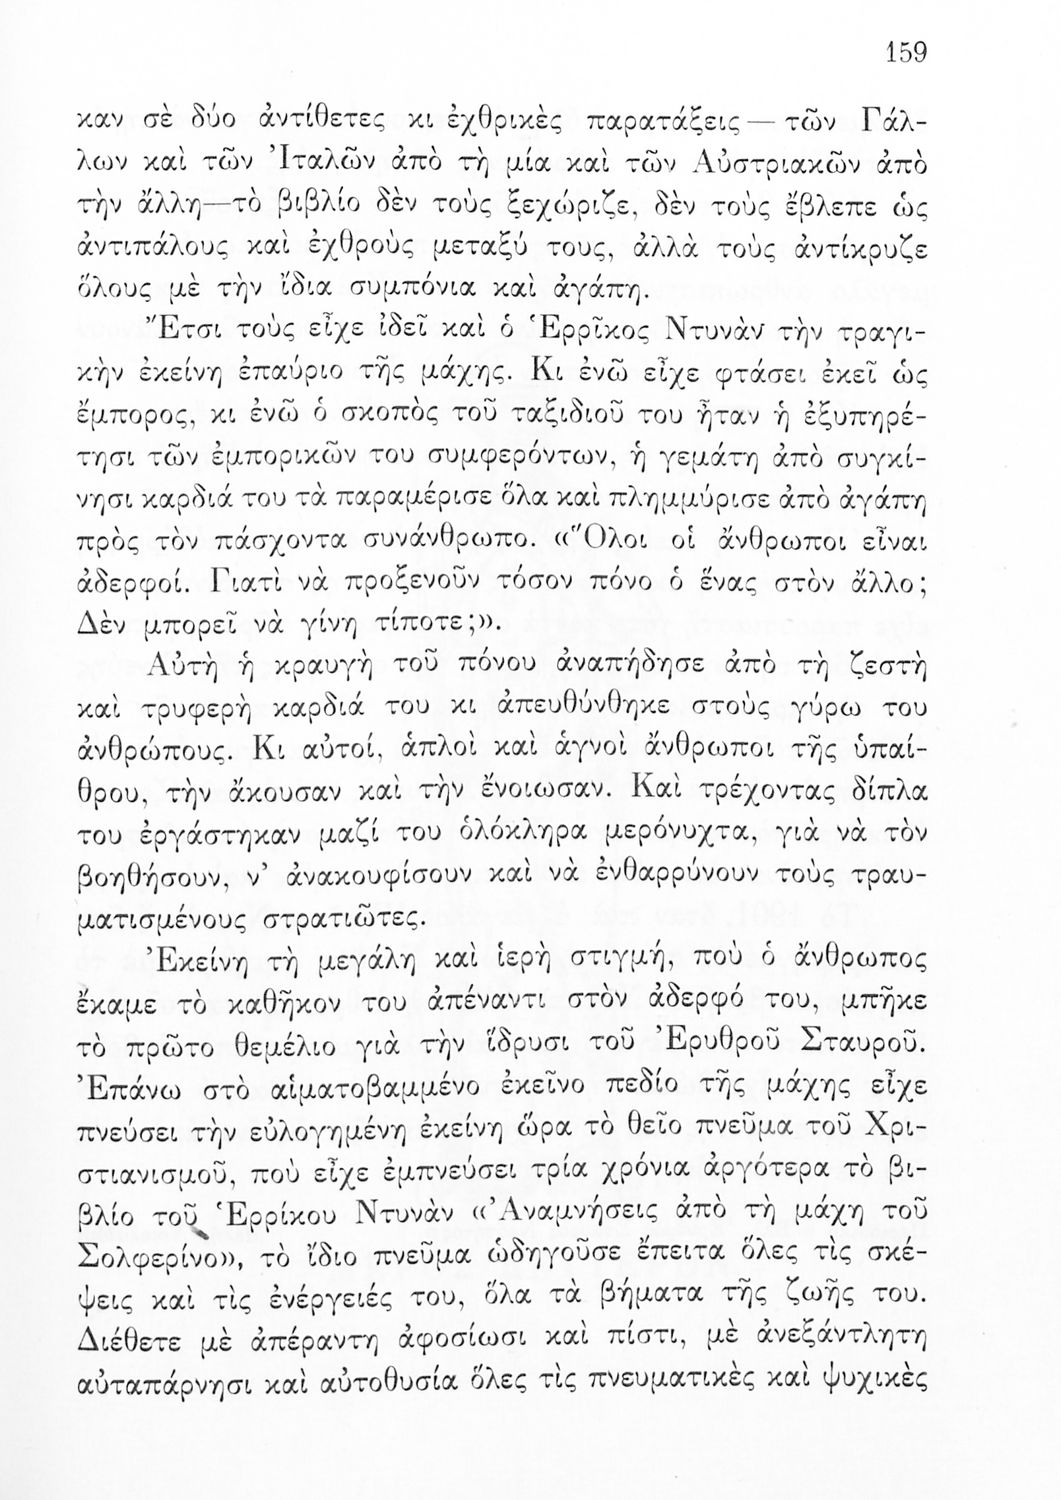 159
καν σὲ δύο ἀντίθετες κι ἐχθρικὲς παρατάξεις — τῶν Γάλ-
λων καὶ τῶν Ἰταλῶν ἀπὸ τὴ μία καὶ τῶν Αὐστριακῶν ἀπὸ
τὴν ἄλλη—τὸ βιβλίο δὲν τοὺς ξεχώριζε, δὲν τοὺς ἔβλεπε ὡς
ἀντιπάλους καὶ ἐχθροὺς μεταξύ τους, ἀλλὰ τοὺς ἀντίκρυζε
ὅλους μὲ τὴν ἴδια συμπόνια καὶ ἀγάπη.
Ἔτσι τοὺς εἶχε ἰδεῖ καὶ ὁ Ἑρρῖκος Ντυνὰν τὴν τραγι-
κὴν ἐκείνη ἐπαύριο τῆς μάχης. Κι ἐνῶ εἶχε φτάσει ἐκεῖ ὡς
ἔμπορος, κι ἐνῶ ὁ σκοπὸς τοῦ ταξιδιοῦ του ἦταν ἡ ἐξυπηρέ-
τησι τῶν ἐμπορικῶν του συμφερόντων, ἡ γεμάτη ἀπὸ συγκί-
νησι καρδιά του τὰ παραμέρισε ὅλα καὶ πλημμύρισε ἀπὸ ἀγάπη
πρὸς τὸν πάσχοντα συνάνθρωπο. «Ὅλοι οἱ ἄνθρωποι εἶναι
ἀδερφοί. Γιατὶ νὰ προξενοῦν τόσον πόνο ὁ ἕνας στὸν ἄλλο;
Δὲν μπορεῖ νὰ γίνη τίποτε;».
Αὐτὴ ἡ κραυγὴ τοῦ πόνου ἀναπήδησε ἀπὸ τὴ ζεστὴ
καὶ τρυφερὴ καρδιά του κι ἀπευθύνθηκε στοὺς γύρω του
ἀνθρώπους. Κι αὐτοί, ἁπλοὶ καὶ ἁγνοὶ ἄνθρωποι τῆς ὑπαί-
θρου, τὴν ἄκουσαν καὶ τὴν ἔνοιωσαν. Καὶ τρέχοντας δίπλα
του ἐργάστηκαν μαζί του ὁλόκληρα μερόνυχτα, γιὰ νὰ τὸν
βοηθήσουν, ν’ ἀνακουφίσουν καὶ νὰ ἐνθαρρύνουν τοὺς τραυ-
ματισμένους στρατιῶτες.
Ἐκείνη τὴ μεγάλη καὶ ἱερὴ στιγμή, ποὺ ὁ ἄνθρωπος
ἔκαμε τὸ καθῆκον του ἀπέναντι στὸν ἀδερφό του, μπῆκε
τὸ πρῶτο θεμέλιο γιὰ τὴν ἵδρυσι τοῦ Ἐρυθροῦ Σταυροῦ.
Ἐπάνω στὸ αἱματοβαμμένο ἐκεῖνο πεδίο τῆς μάχης εἶχε
πνεύσει τὴν εὐλογημένη ἐκείνη ὥρα τὸ θεῖο πνεῦμα τοῦ Χρι-
στιανισμοῦ, ποὺ εἶχε ἐμπνεύσει τρία χρόνια ἀργότερα τὸ βι-
βλίο τοῦ Ἑρρίκου Ντυνὰν «Ἀναμνήσεις ἀπὸ τὴ μάχη τοῦ
Σολφερίνο», τὸ ἴδιο πνεῦμα ὡδηγοῦσε ἔπειτα ὅλες τὶς σκέ-
ψεις καὶ τὶς ἐνέργειές του, ὅλα τὰ βήματα τῆς ζωῆς του.
Διέθετε μὲ ἀπέραντη ἀφοσίωσι καὶ πίστι, μὲ ἀνεξάντλητη
αὐταπάρνησι καὶ αὐτοθυσία ὅλες τὶς πνευματικὲς καὶ ψυχικὲς